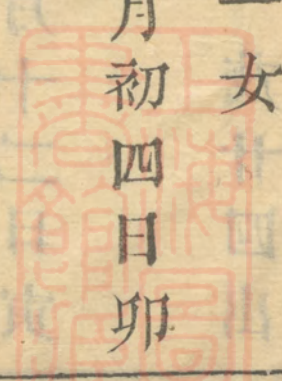 一女
月初四日卯